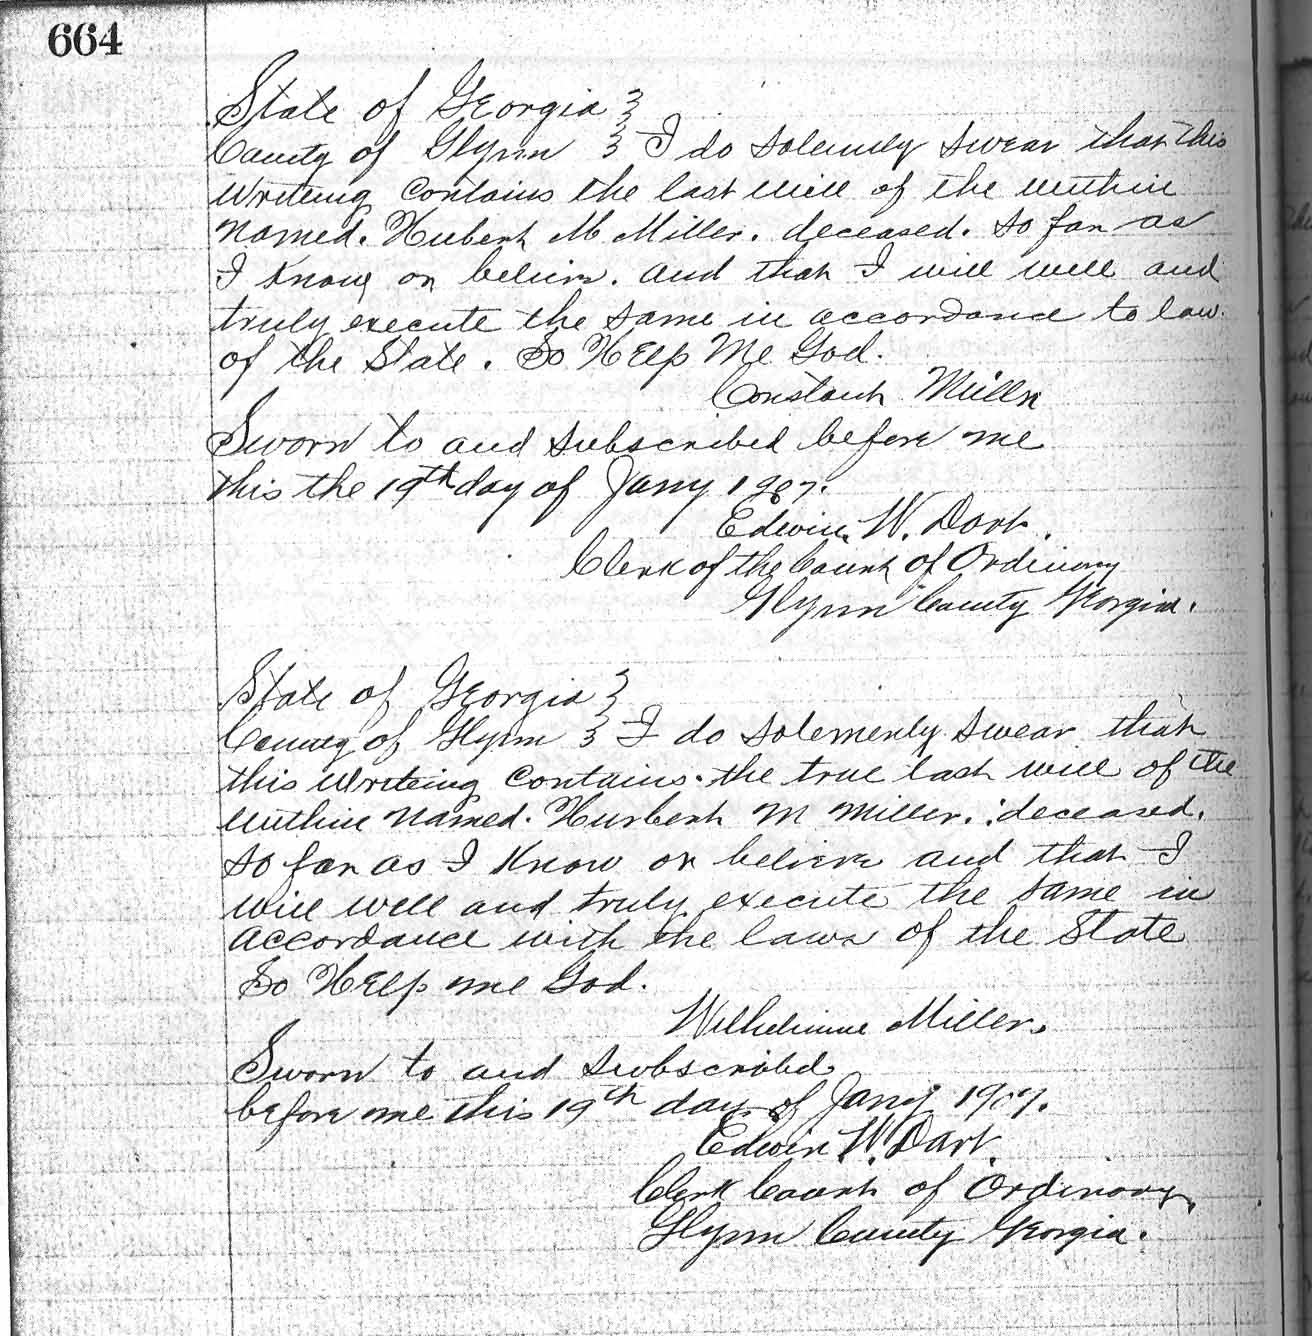 664
State of Georgia }
County of Glynn } I do solemnly swear that this
writing contains the last will of the within
named. Hubert M Miller. deceased. so far as
I know or believe. and that I will well and
truly execute the same in accordance to law.
of the State. So Help Me God.
Constant Miller
Sworn to and subscribed before me
this the 19th day of Jany 1907.
Edwin W. Dart.
Clerk of the Court of Ordinary
Glynn County Georgia.
State of Georgia }
County of Glynn } I do solemenly swear that
this writeing contains the true last will of the
within named. Hurbert M Miller. deceased.
so far as I know or believe and that I
will well and truly execute the same in
accordance with the laws of the State
So Help me God.
Wilhelmine Miller.
Sworn to and subscribd
before me this 19th day of Jany 1907.
Edwin W. Dart.
Clerk Court of Ordinary,
Glynn County Georgia.